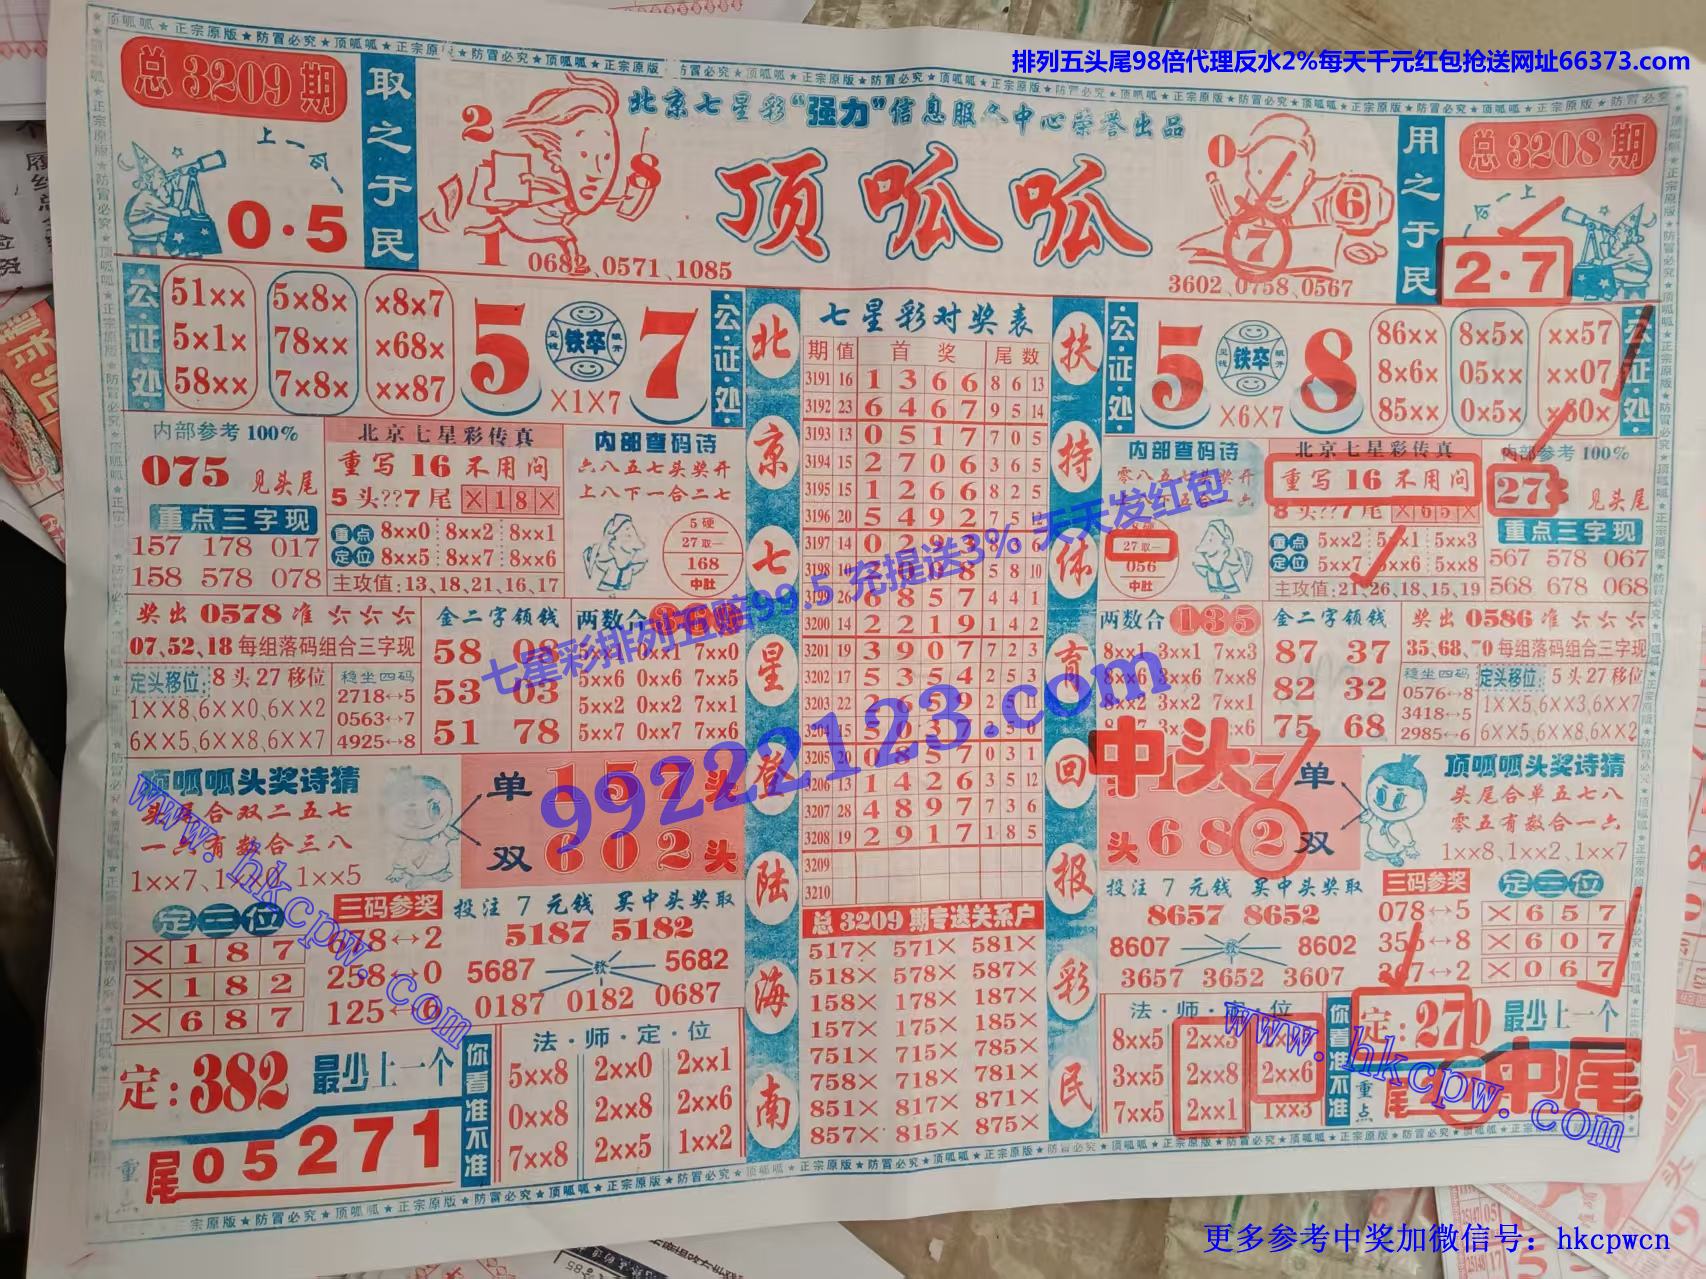 排列五头尾98倍代理反水2%每天千元红包抢送网址66373.com
总3209期
上一
0·5
取之于民
2
8
1
0682、0571、1085
北京七星彩“强力”信息服务中心荣誉出品
顶呱呱
0
6
7
3602、0758、0567
用之于民
总3208期
上一
2·7
公·证·处
51××
5×1×
58××
5×8×
78××
7×8×
×8×7
×68×
××87
5
铁卒
7
×1×7
公·证·处
北京七星登陆海南
七星彩对奖表
期 值 首奖 尾数
3191 16 1 3 6 6 8 6 13
3192 23 6 4 6 7 9 5 14
3193 13 0 5 1 7 7 0 5
3194 15 2 7 0 6 3 6 5
3195 15 1 2 6 6 8 2 5
3196 20 5 4 9 2
3197 14 0 2 9 3
3198
6 8 5 7 4 4 1
3200 14 2 2 1 9 1 4 2
3201 19 3 9 0 7 7 2 3
3202 17 5 3 5 4 2 5 3
3203 22 2 6 5 9
3205 20 0 8 5 7 0 3 1
3206 13 1 4 2 6 3 5 12
3207 28 4 8 9 7 7 3 6
3208 19 2 9 1 7 1 8 5
3209
3210
总3209期专送关系户
517× 571× 581×
518× 578× 587×
158× 178× 187×
157× 175× 185×
751× 715× 785×
758× 718× 781×
851× 817× 871×
857× 815× 875×
扶持体育回报彩民
公·证·处
5
铁卒
8
×6×7
86××
8×6×
85××
8×5×
05××
0×5×
××57
××07
×60×
公·证·处
内部参考100%
075 见头尾
重点三字现
157 178 017
158 578 078
北京七星彩传真
重写16不用问
5头??7尾 ×18×
重点定位
8××0 8××2 8××1
8××5 8××7 8××6
主攻值:13,18,21,16,17
内部查码诗
六八五七头奖开
上八下一合二七
5硬
27取一
168
中肚
内部查码诗
27取一
056
中肚
北京七星彩传真
重写16不用问
8头??7尾 ×65×
重点定位
5××2 5××1 5××3
5××7 5××6 5××8
主攻值:21,26,18,15,19
内部参考100%
273 见头尾
重点三字现
567 578 067
568 678 068
奖出0578准六六六
07,52,18每组落码组合三字现
定头移位: 8头27移位
1××8,6××0,6××2
6××5,6××8,6××7
稳坐四码
2718↔5
0563↔7
4925↔8
金二字领钱
58 08
53 03
51 78
两数合
5××1 0××1 7××0
5××6 0××6 7××5
5××2 0××2 7××1
5××7 0××7 7××6
两数合135
8××1 3××1 7××3
8××6 3××6 7××8
8××2 3××2 7××1
金二字领钱
87 37
82 32
75 68
奖出0586准六六六
35,68,70每组落码组合三字现
稳坐四码
0576↔8
3418↔5
2985↔6
定头移位: 5头27移位
1××5,6××3,6××7
6××5,6××8,6××2
顶呱呱头奖诗猜
头尾合双二五七
一六有数合三八
1××7、1××0、1××5
单 157头
双 602头
中头
单
头682双
顶呱呱头奖诗猜
头尾合单五七八
零五有数合一六
1××8、1××2、1××7
定三位
×187
×182
×687
三码参奖
678↔2
258↔0
125↔6
投注7元钱 买中头奖取
5187 5182
5687 5682
0187 0182 0687
投注7元钱 买中头奖取
8657 8652
8607 8602
3657 3652 3607
三码参奖
078↔5
356↔8
307↔2
定三位
×657
×607
×067
定:382 最少上一个
重点
尾05271
你看准不准
法·师·定·位
5××8 2××0 2××1
0××8 2××8 2××6
7××8 2××5 1××2
法·师·定·位
8××5 2××3
3××5 2××8 2××6
7××5 2××1 1××3
你看准不准
定:270 最少上一个
重点
尾
中尾
七星彩排列五赔99.5 充提送3% 天天发红包
99222123.com
www.hkcpw.com
www.hkcpw.com
更多参考中奖加微信号：hkcpwcn